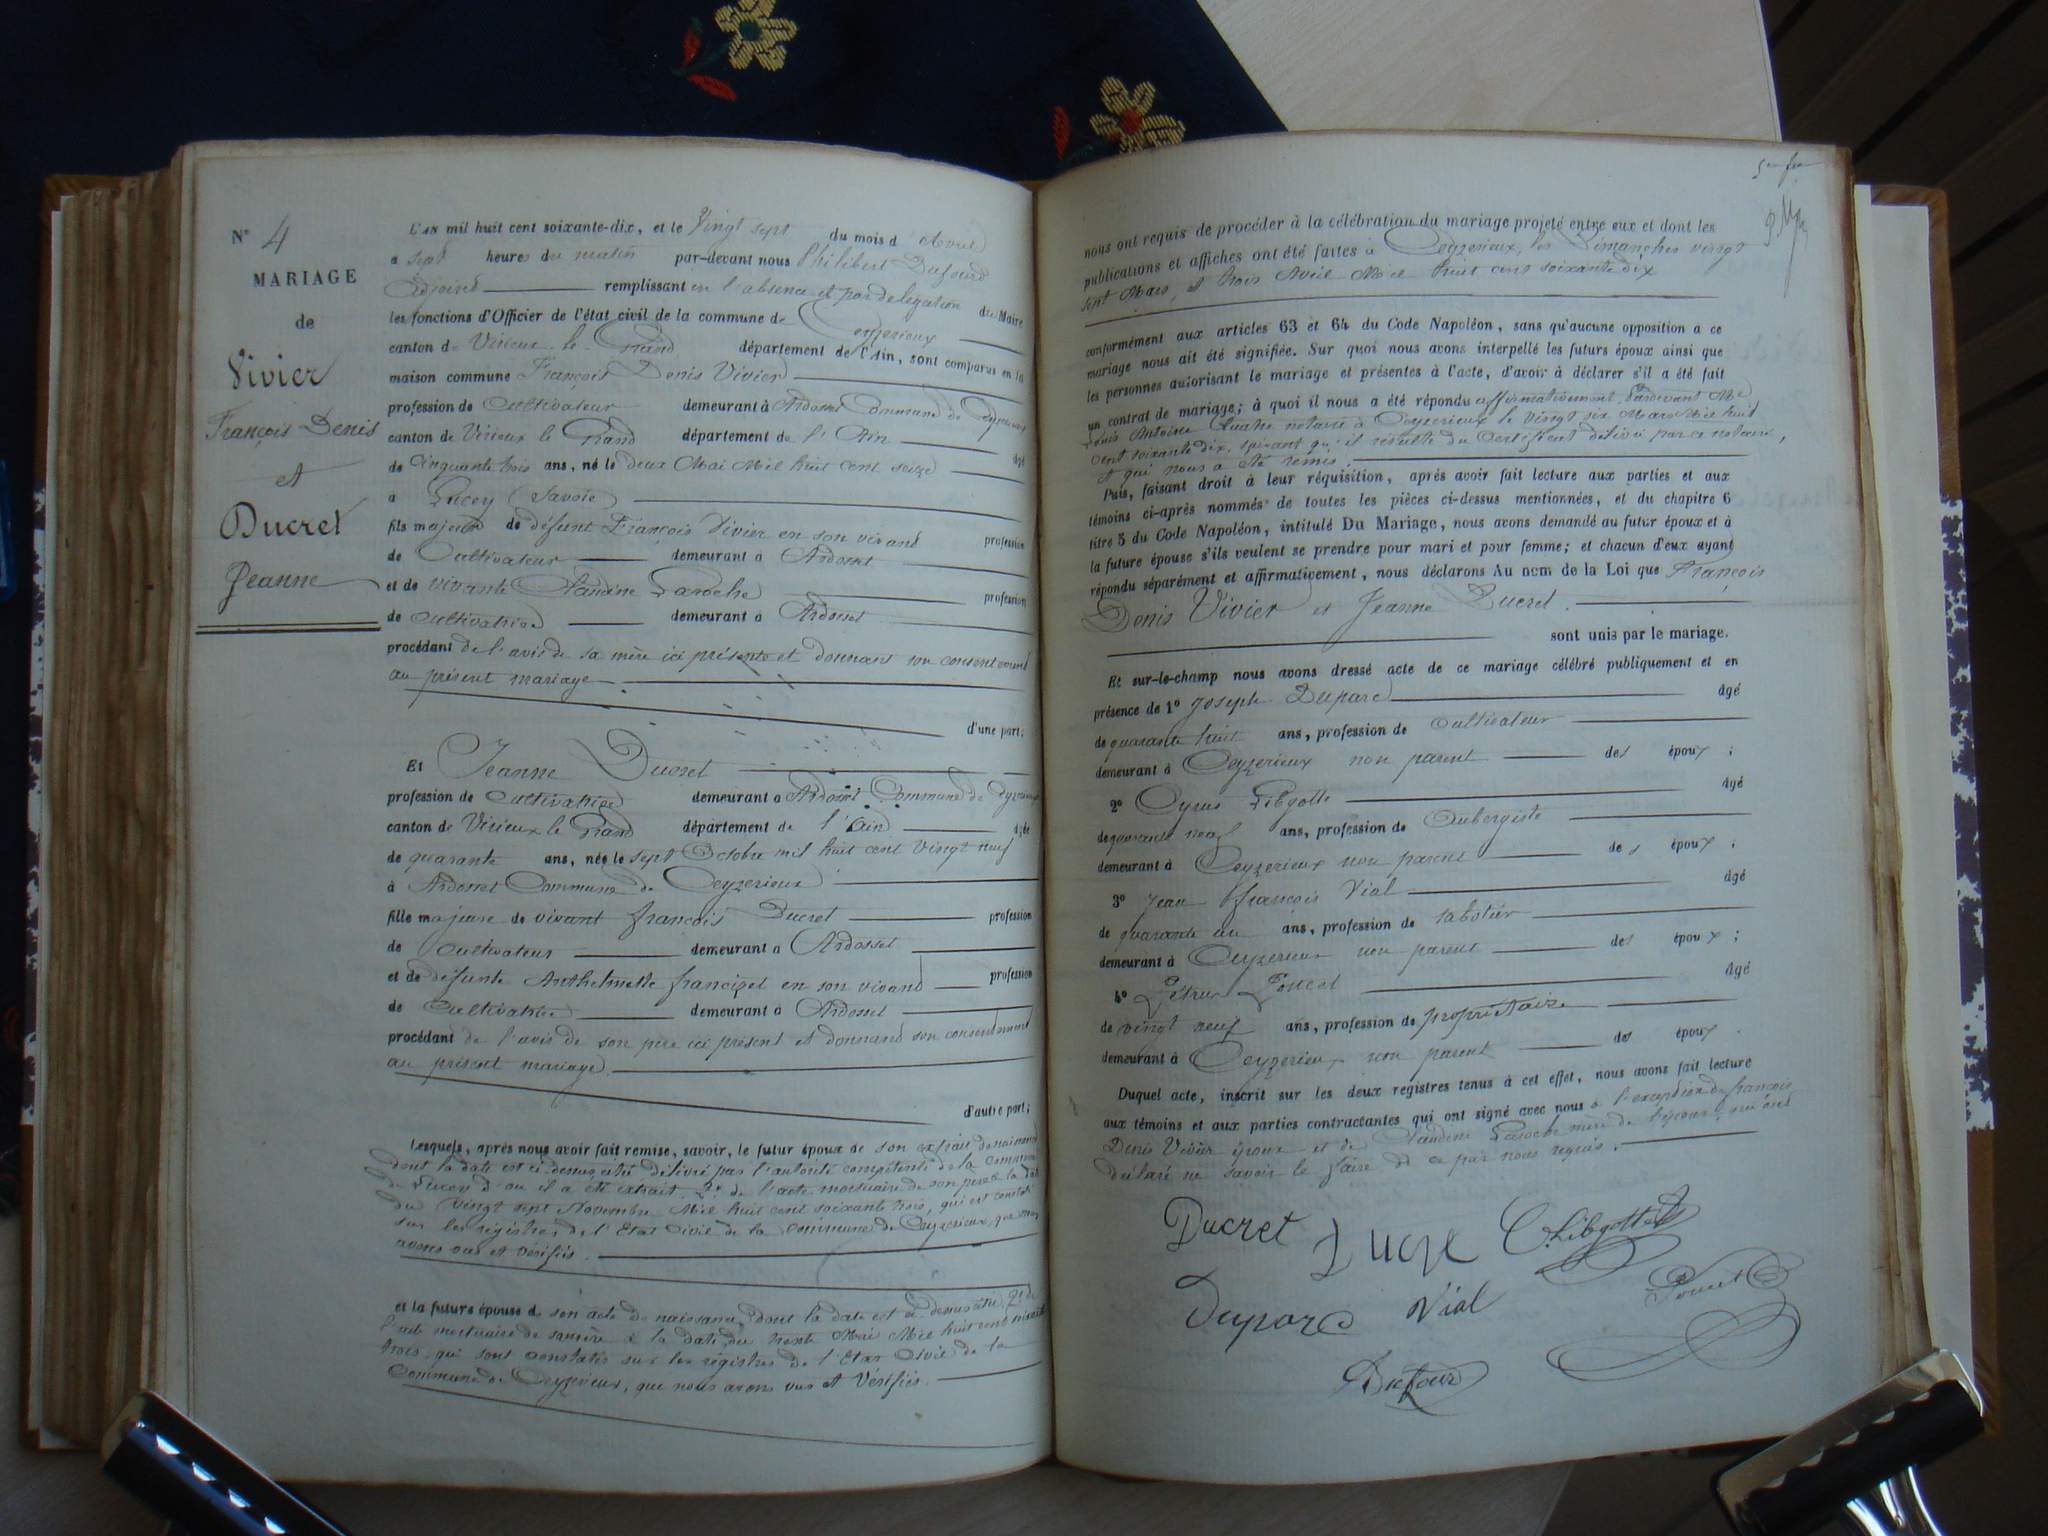 N° 4
MARIAGE
de
Vivier
François Denis
et
Ducret
Jeanne
L'AN mil huit cent soixante-dix, et le Vingt sept du mois d'Avril
a sept heures du matin par-devant nous Philibert Dufour
Adjoint remplissant en l'absence et par délégation du Maire
les fonctions d'Officier de l'état civil de la commune de Ceyzerieux
canton de Virieux le Grand département de l'Ain, sont comparus en la
maison commune François Denis Vivier
profession de Cultivateur demeurant à Ardosset Commune de Ceyzerieux
canton de Virieux le Grand département de l'Ain âgé
de Cinquante trois ans, né le deux Mai Mil huit cent seize
à Lucey (Savoie)
fils majeur de défunt François Vivier en son vivant profession
de Cultivateur demeurant à Ardosset
et de vivante Claudine Laroche profession
de Cultivatrice demeurant à Ardosset
procédant de l'avis de sa mère ici présente et donnant son consentement
au présent mariage
d'une part;
Et Jeanne Ducret
profession de Cultivatrice demeurant à Ardosset Commune de Ceyzerieux
canton de Virieux le Grand département de l'Ain âgée
de quarante ans, née le sept Octobre mil huit cent vingt neuf
à Ardosset Commune de Ceyzerieux
fille majeure de vivant françois Ducret profession
de Cultivateur demeurant à Ardosset
et de défunte Anthelmette francipet en son vivant profession
de Cultivatrice demeurant à Ardosset
procédant de l'avis de son père ici présent et donnant son consentement
au présent mariage
d'autre part;
Lesquels, après nous avoir fait remise, savoir, le futur époux de son extrait de naissance
dont la date est ci-dessus citée délivré par l'autorité compétente de la Commune
de Lucey d'où il a été extrait. 2° de l'acte mortuaire de son père à la date
du vingt sept Novembre Mil huit cent soixante trois, qui est constaté
sur les registres de l'Etat Civil de la Commune de Ceyzerieux que nous
avons vus et vérifiés.
et la future épouse de son acte de naissance, dont la date est ci-dessus citée, 2° de
l'acte mortuaire de sa mère à la date du trente Mai Mil huit cent soixante
trois, qui sont constatés sur les registres de l'Etat Civil de la
Commune de Ceyzerieux, que nous avons vus et Vérifiés.
nous ont requis de procéder à la célébration du mariage projeté entre eux et dont les
publications et affiches ont été faites à Ceyzerieux, les Dimanches vingt
sept Mars, et trois Avril Mil huit cent soixante dix
conformément aux articles 63 et 64 du Code Napoléon, sans qu'aucune opposition a ce
mariage nous ait été signifiée. Sur quoi nous avons interpellé les futurs époux ainsi que
les personnes autorisant le mariage et présentes à l'acte, d'avoir à déclarer s'il a été fait
un contrat de mariage; à quoi il nous a été répondu affirmativement, pardevant Me
Denis Antoine notaire à Ceyzerieux le vingt six Mars Mil huit
cent soixante dix, suivant qu'il résulte du Certificat délivré par ce notaire,
et qui nous a été remis.
Puis, faisant droit à leur réquisition, après avoir fait lecture aux parties et aux
témoins ci-après nommés de toutes les pièces ci-dessus mentionnées, et du chapitre 6
titre 5 du Code Napoléon, intitulé Du Mariage, nous avons demandé au futur époux et à
la future épouse s'ils veulent se prendre pour mari et pour femme; et chacun d'eux ayant
répondu séparément et affirmativement, nous déclarons Au nom de la Loi que François
Denis Vivier et Jeanne Ducret.
sont unis par le mariage.
Et sur-le-champ nous avons dressé acte de ce mariage célébré publiquement et en
présence de 1° Joseph Duparc âgé
de quarante huit ans, profession de Cultivateur
demeurant à Ceyzerieux non parent des époux;
2° Cyrus Libgotte âgé
de quarante neuf ans, profession de Aubergiste
demeurant à Ceyzerieux non parent des époux;
3° Jean François Vial âgé
de quarante un ans, profession de sabotier
demeurant à Ceyzerieux non parent des époux;
4° Pétrus Poncet âgé
de vingt neuf ans, profession de propriétaire
demeurant à Ceyzerieux non parent des époux.
Duquel acte, inscrit sur les deux registres tenus à cet effet, nous avons fait lecture
aux témoins et aux parties contractantes qui ont signé avec nous à l'exception de françois
Denis Vivier époux et de Claudine Laroche mère de l'époux, qui ont
déclaré ne savoir le faire de ce par nous requis.
Ducret C. Libgotte
Duparc Vial Poncet
Dufour